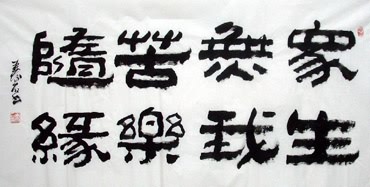 众生
無我
苦樂
隨緣